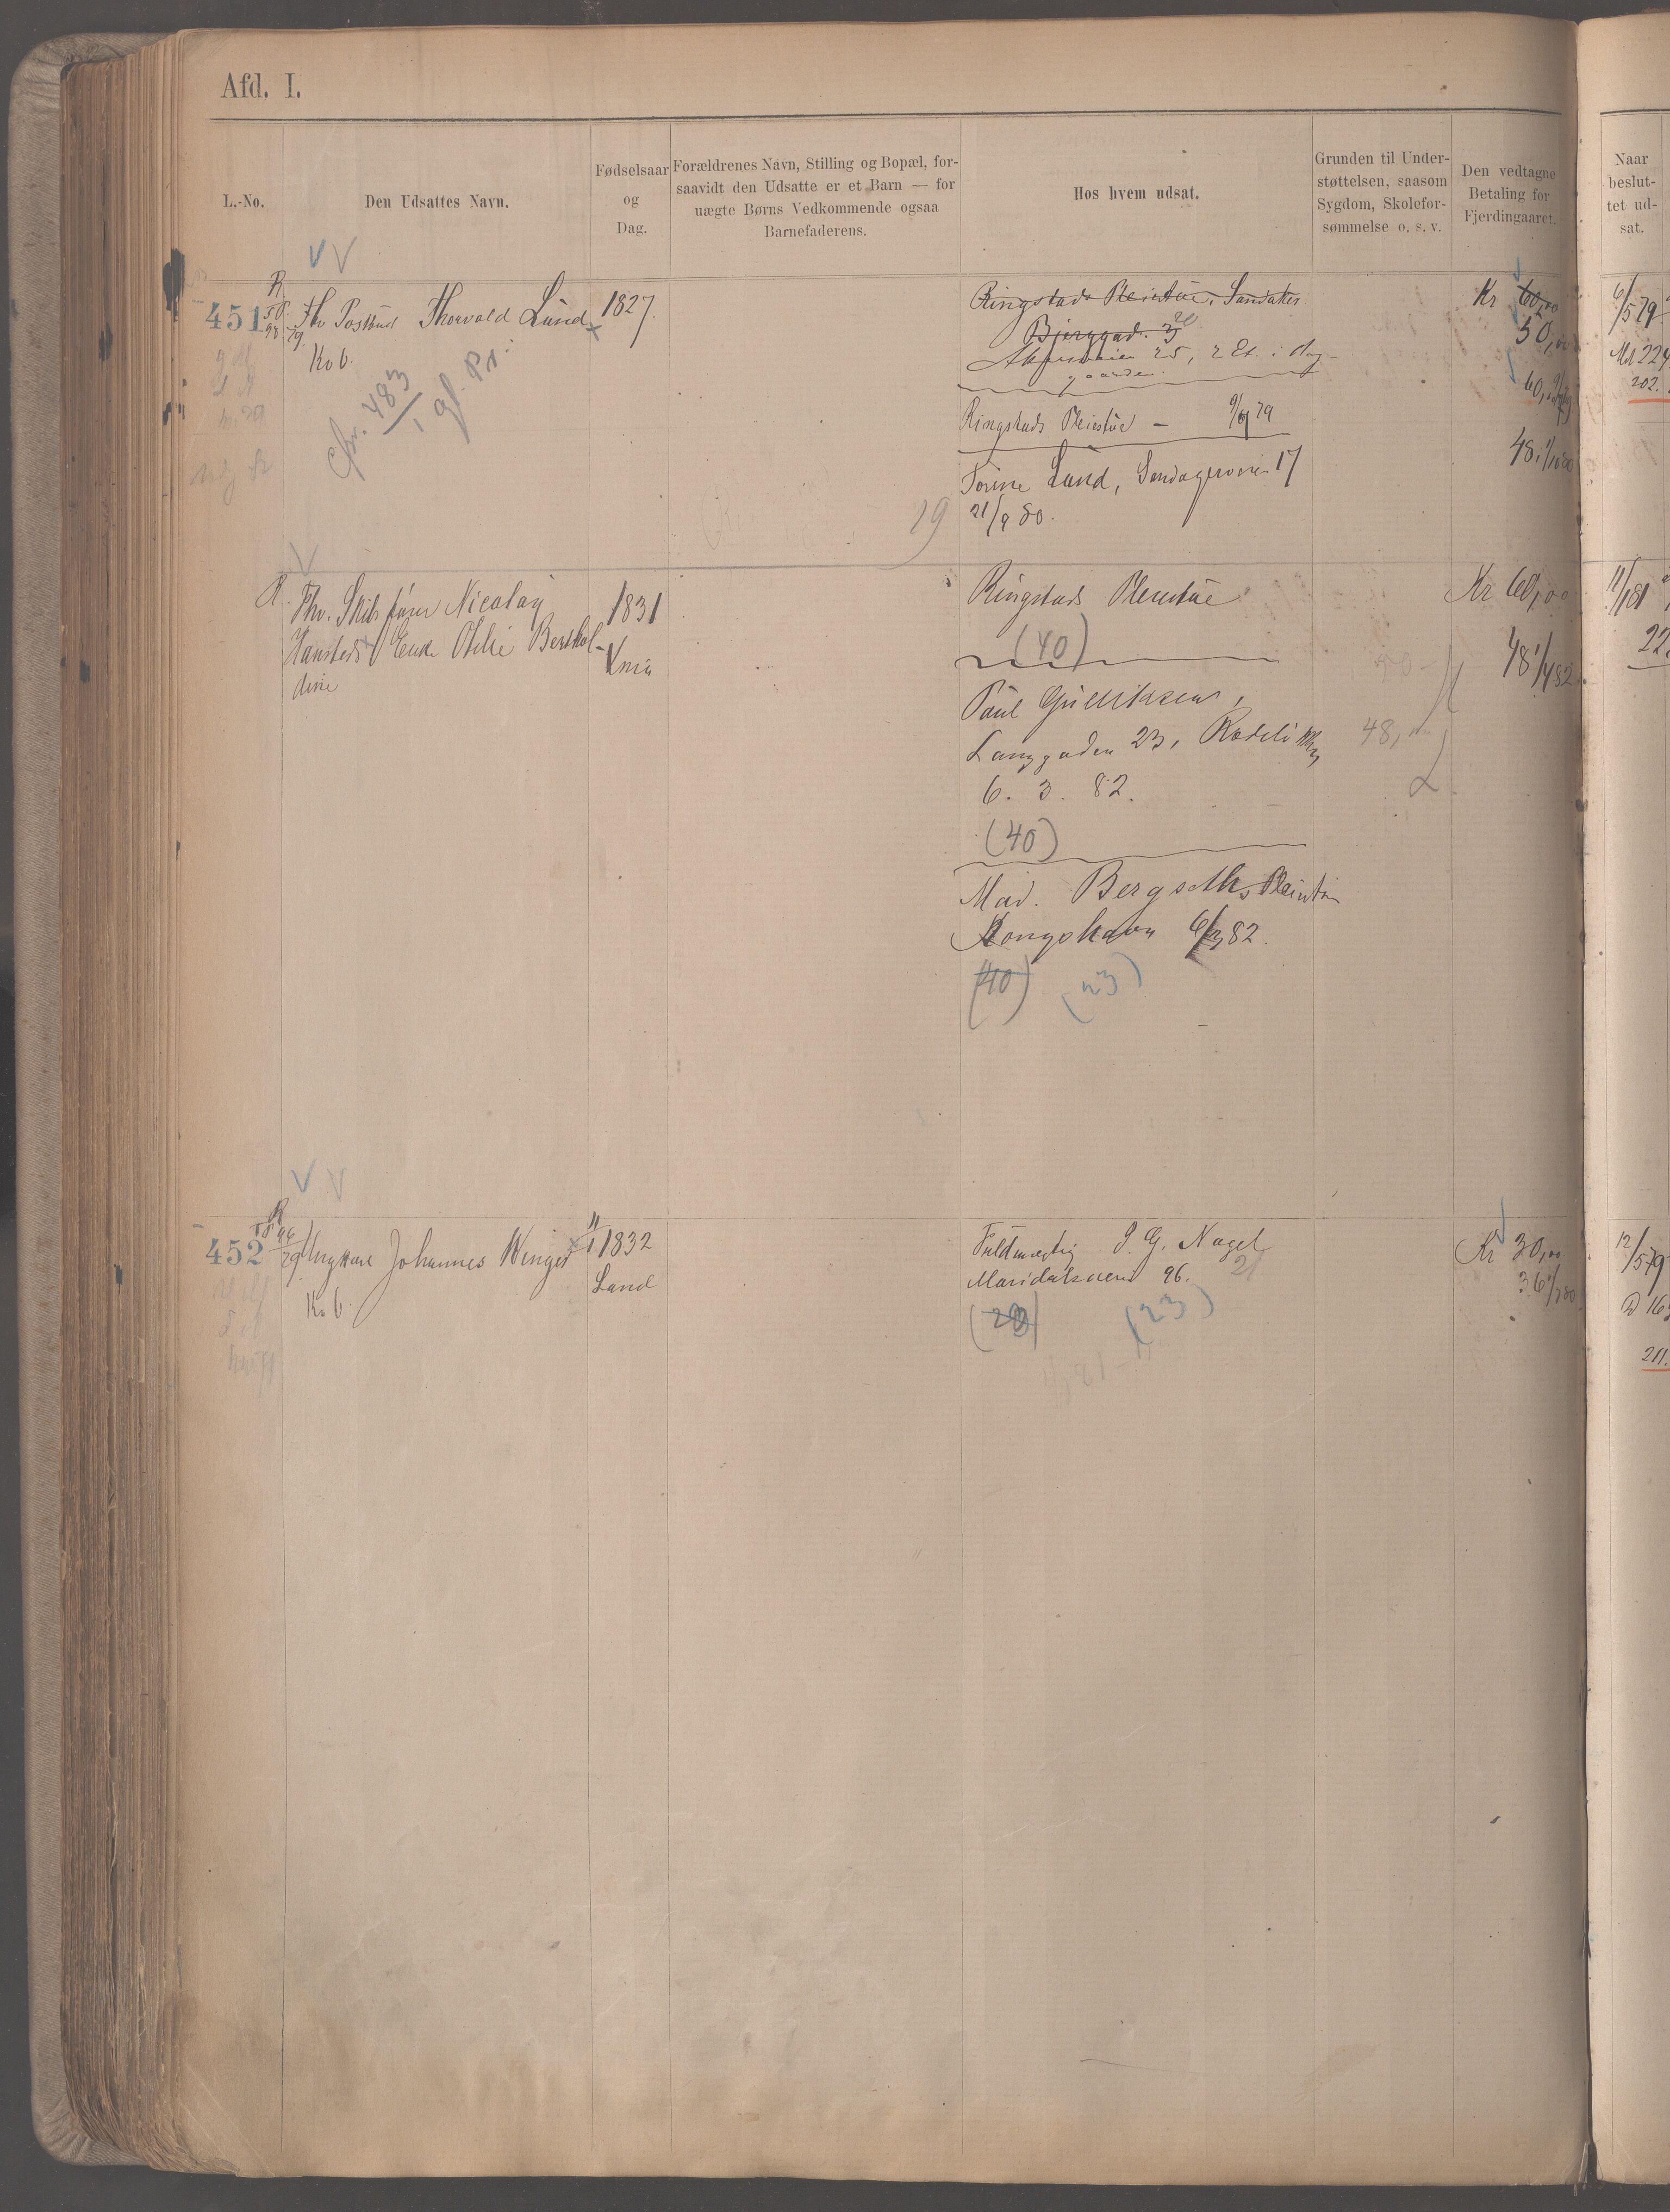 Afd. I.
L.-No.
Den Udsattes Navn.
Fødselsaar
og
Dag.
Forældrenes Navn, Stilling og Bopæl, for-
saavidt den Udsatte er et Barn — for
uægte Børns Vedkommende ogsaa
Barnefaderens.
Hos hvem udsat.
Grunden til Under-
støttelsen, saasom
Sygdom, Skolefor-
sømmelse o. s. v.
Den vedtagne
Betaling for
Fjerdingaaret.
Naar
beslut-
tet ud-
sat.
451
R
Fhv Postbud Thorvald Lund
Kvb.
cfr. 483/1 gl. Pr.
1827.
Ringstads Pleiestue, Sandaker
Bjerggad. 3
25, 2 Et. i Bag-
gaarden.
Ringstads Pleiestue — 9/9 79
Lund, 17
21/9 80.
19
Kr 60,00
50,00
60,
48, 1/10 80
6/5 79
202.
R. Fhv. Skibsfører Nicolay
Hansteds Enke Otilie Berthol-
dine
1831
Ringstads Pleiestue
(40)
Paul Gulliksen,
Langgaden 23, Rodeløkken
6. 3. 82.
(40)
Mad. Bergseths Pleiestue
Kongshavn 6/3 82.
(40) (23)
48,
Kr 60,00
48 1/4 82
11/1 81
452
R
Johannes Winger
Kvb.
11/1 1832
Land
Fuldmægtig J. G. Nagel
Maridalsveien 96.
21
(23)
Kr 30,00
36 1/1 80
12/5 79
211.